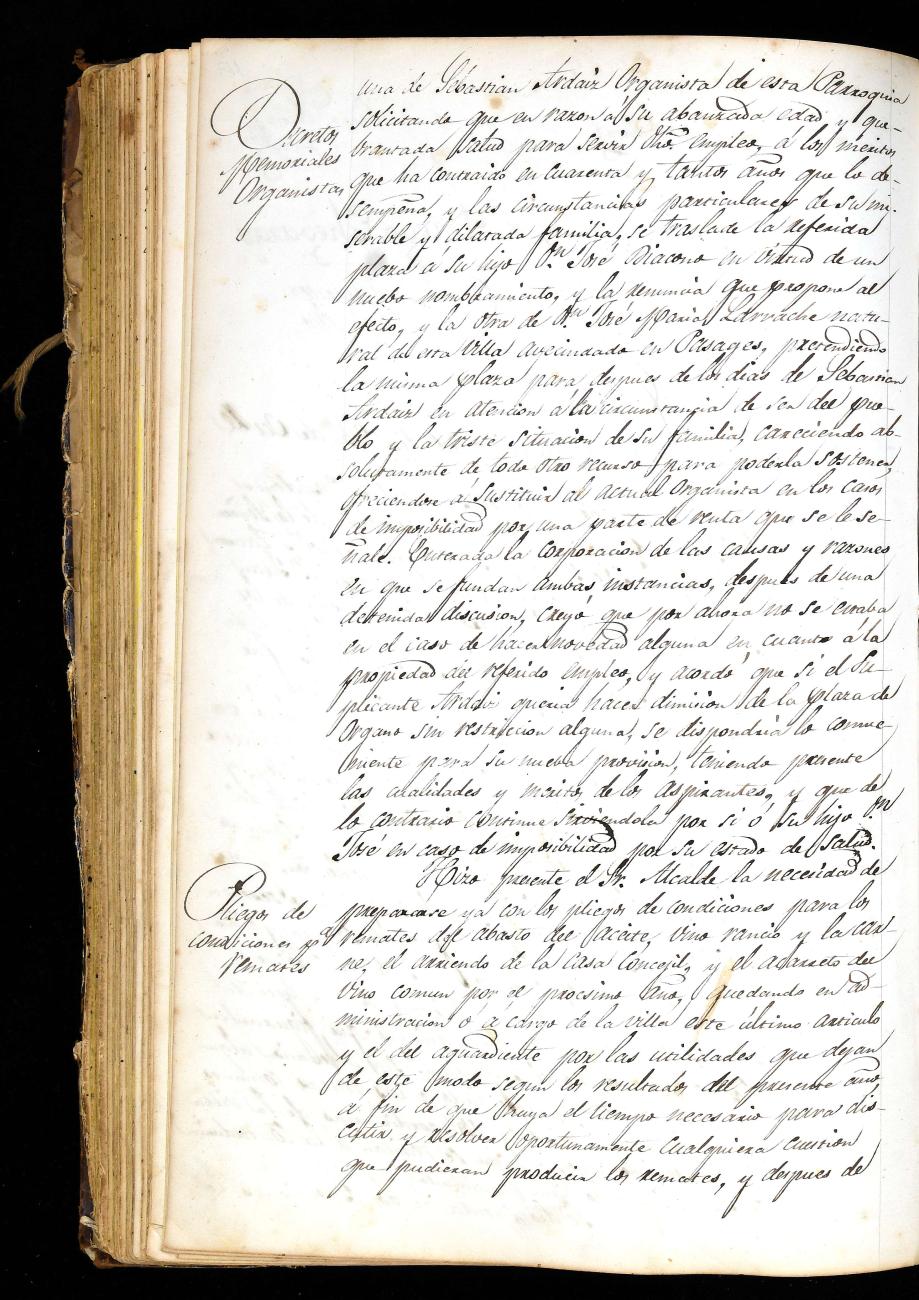 Decretos
Memoriales
Organistas
una de Sebastian Ardaiz Organista de esta Parroquia
solicitando que en razon á su abanzada edad y que-
brantada salud para servir otro empleo, á los meritos
que ha contraido en cuarenta y tantos años que lo de-
sempeña, y las circunstancias particulares de su mi-
serable y dilatada familia, se traslade la referida
plaza á su hijo Dn. José Diacono en virtud de un
nuebo nombramiento, y la renuncia que propone al
efecto, y la otra de Dn. José Maria Larrache natu-
ral de esta villa avecindado en Pasages, pretendiendo
la misma plaza para despues de los dias de Sebastian
Ardaiz en atencion á la circunstancia de ser del pue-
blo y la triste situacion de su familia, careciendo ab-
solutamente de todo otro recurso para poderla sostener,
ofreciendose á sustituir al actual organista en los casos
de imposibilidad por una parte de renta que se le se-
ñale. Enterada la corporacion de las causas y razones
en que se fundan ambas instancias, despues de una
detenida discusion, creyó que por ahora no se estaba
en el caso de hacer novedad alguna en cuanto á la
propiedad del referido empleo, y acordó que si el Su-
plicante Ardaiz queria hacer dimision de la plaza de
Organo sin restriccion alguna, se dispondria lo conve-
niente para su nueva provision, teniendo presente
las cualidades y merito de los aspirantes, y que de
lo contrario continue sirviendola por si ó su hijo Dn.
José en caso de imposibilidad por su estado de salud.
Pliegos de
condiciones pa.
remates
Hizo presente el Sr. Alcalde la necesidad de
prepararse ya con los pliegos de condiciones para los
remates del abasto del aceite, vino rancio y la car-
ne, el arriendo de la casa Concejil, y el acarreto del
vino comun por el procsimo año, quedando en ad-
ministracion ó a cargo de la villa este último articulo
y el del aguardiente por las utilidades que dejan
de este modo segun los resultados del presente año,
a fin de que haya el tiempo necesario para dis-
cutir y resolver oportunamente cualquiera cuestion
que pudieran producir los remates, y despues de